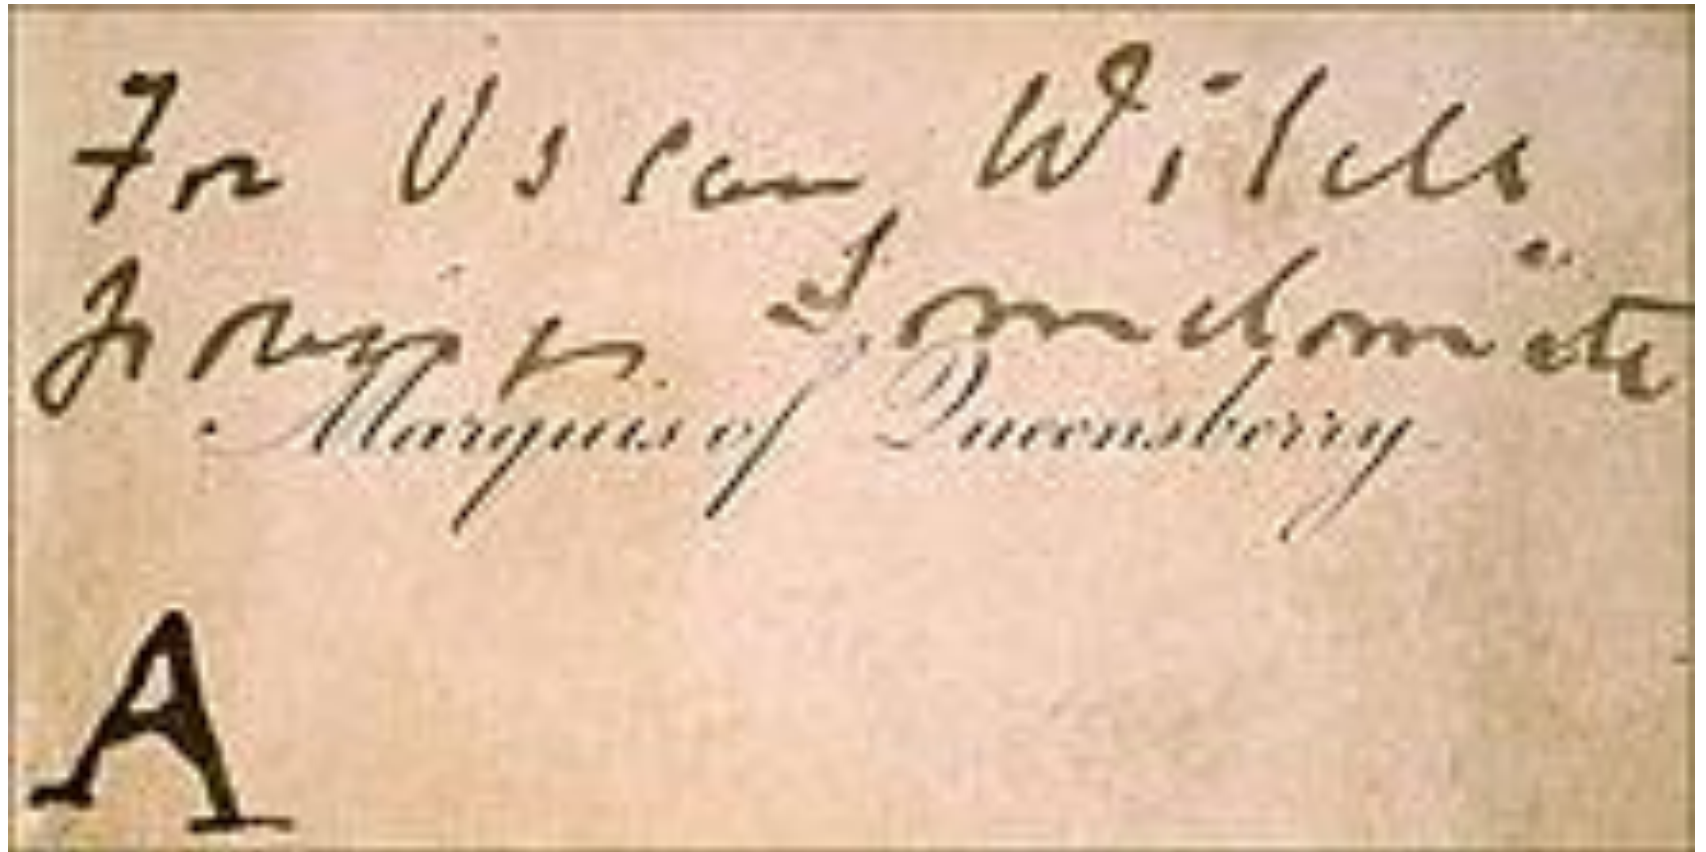 For Oscar Wilde
posing Somdomite
Marquis of Queensberry
A